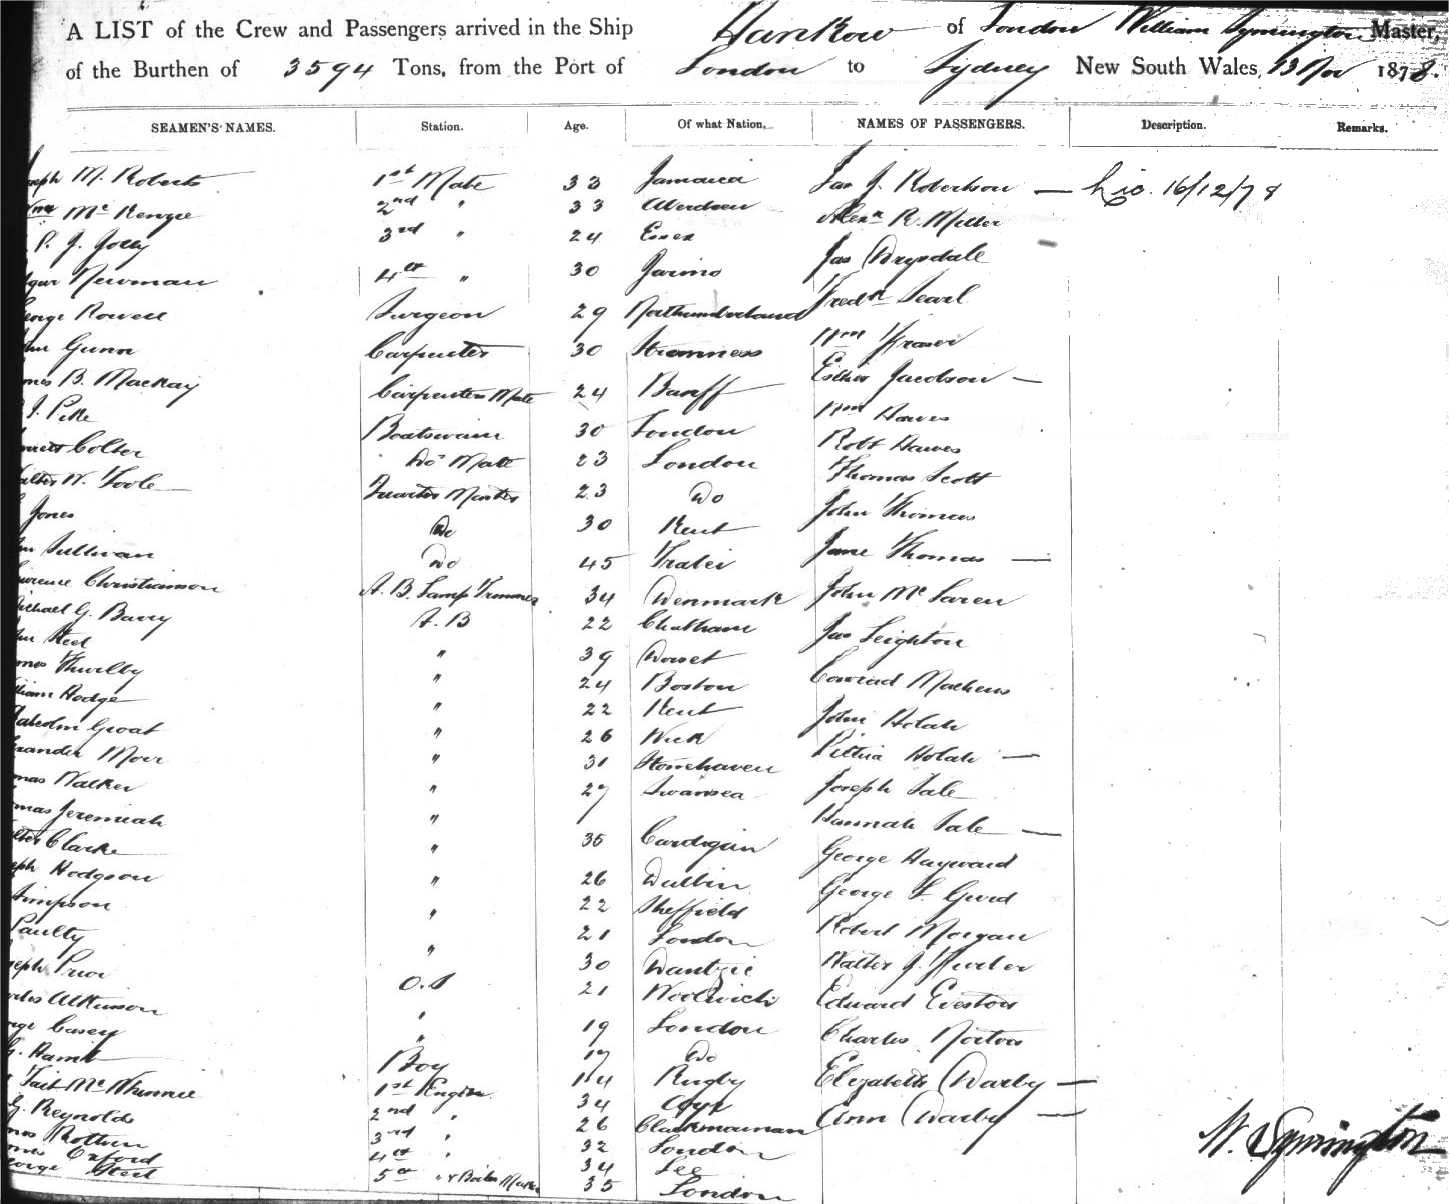 A LIST of the Crew and Passengers arrived in the Ship Hankow of London William Symington Master,
of the Burthen of 3594 Tons, from the Port of London to Sydney New South Wales, 13 Nov 1878.
SEAMEN'S NAMES. Station. Age. Of what Nation. NAMES OF PASSENGERS. Description. Remarks.
oseph M. Roberts 1st Mate 33 Jamaica Jas J. Robertson — Lic. 16/12/78
Mc Kenzie 2nd " 33 Aberdeen Alexr R. Miller
P. J. Jolly 3rd " 24 Essex Jas Drysdale
dgar Newman 4th " 30 Fredk Searl
eorge Rowell Surgeon 29 Northumberland Wm Fraser
ohn Gunn Carpenter 30 Stromness Esther Jacobson —
mes B. Mackay Carpenters Mate 24 Banff Wm Hawes
J. Pike Boatswain 30 London Robt Hawes
Colter Do Mate 23 London Thomas Scott
alter W. Toole Quarter Master 23 Do John Thomas
Jones Do 30 Kent Jane Thomas —
Sullivan Do 45 Tralei John Mc Laren
awrence Christianson A. B. Lamp Trimmer 34 Denmark Jas Leighton
ichael G. Barry A. B 22 Chatham Conrad Mathews
ohn Steel " 39 Dorset John Holah
mes Thurlby " 24 Boston Holah —
lliam Hodge " 22 Kent Joseph Tale
alcolm Groat " 26 Wick Hannah Tale —
exander Moir " 31 Stonehaven George Hayward
mas Walker " 27 Swansea George F. Gurd
mas Jeremiah " 35 Cardigan Robert Morgan
lter Clarke " 26 Dublin Walter J.
eph Hodgson " 22 Sheffield Edward Eveston
Simpson " 21 London Charles Norton
Paulty " 30 Dantzic Elizabeth Darby —
seph Prior O.S 21 Woolwich Ann Darby —
arles Atkinson " 19 London
orge Casey " 17 Do
Boy 14 Rugby
Tait Mc Whinnie 1st Engin 34 Ayr
G. Reynolds 2nd " 26 Clackmannan
3rd " 32 London
mes Oxford 4th " 34 Lee
eorge Steel 5th " & Boiler Maker 35 London
W. Symington